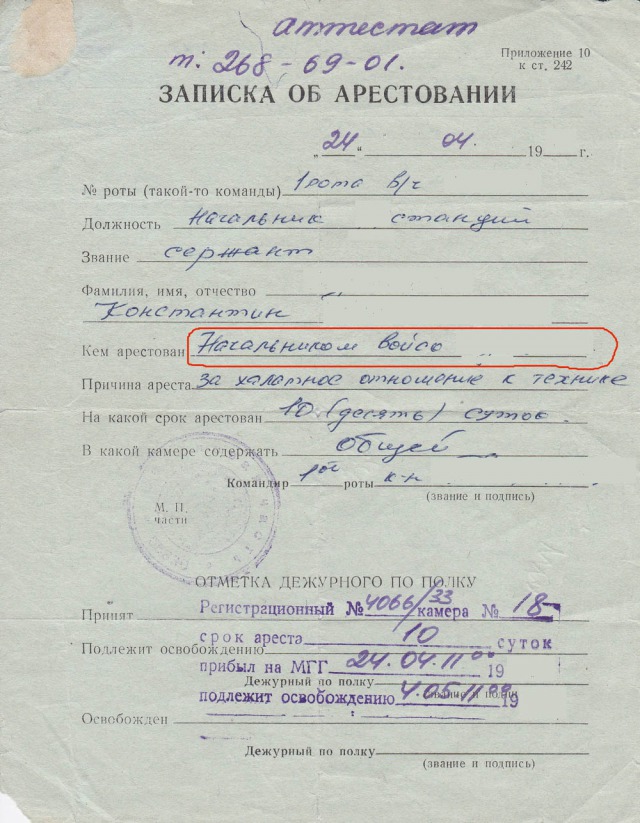 аттестат
т: 268-69-01.
Приложение 10
к ст. 242
ЗАПИСКА ОБ АРЕСТОВАНИИ
„24“ 04. 19 г.
№ роты (такой-то команды) 1 рота в/ч
Должность Начальник станций
Звание сержант
Фамилия, имя, отчество
Константин
Кем арестован Начальником войск
Причина ареста за халатное отношение к технике
На какой срок арестован 10 (десять) суток
В какой камере содержать общей
Командир 1ой роты к-н
(звание и подпись)
М. П.
части
ОТМЕТКА ДЕЖУРНОГО ПО ПОЛКУ
Принят Регистрационный № 4066/33 камера № 18
срок ареста 10 суток
Подлежит освобождению
прибыл на МГГ 24.04.11 00 19
Дежурный по полку
(звание и подпись)
подлежит освобождению 4.05.11 00 19
Освобожден
Дежурный по полку
(звание и подпись)